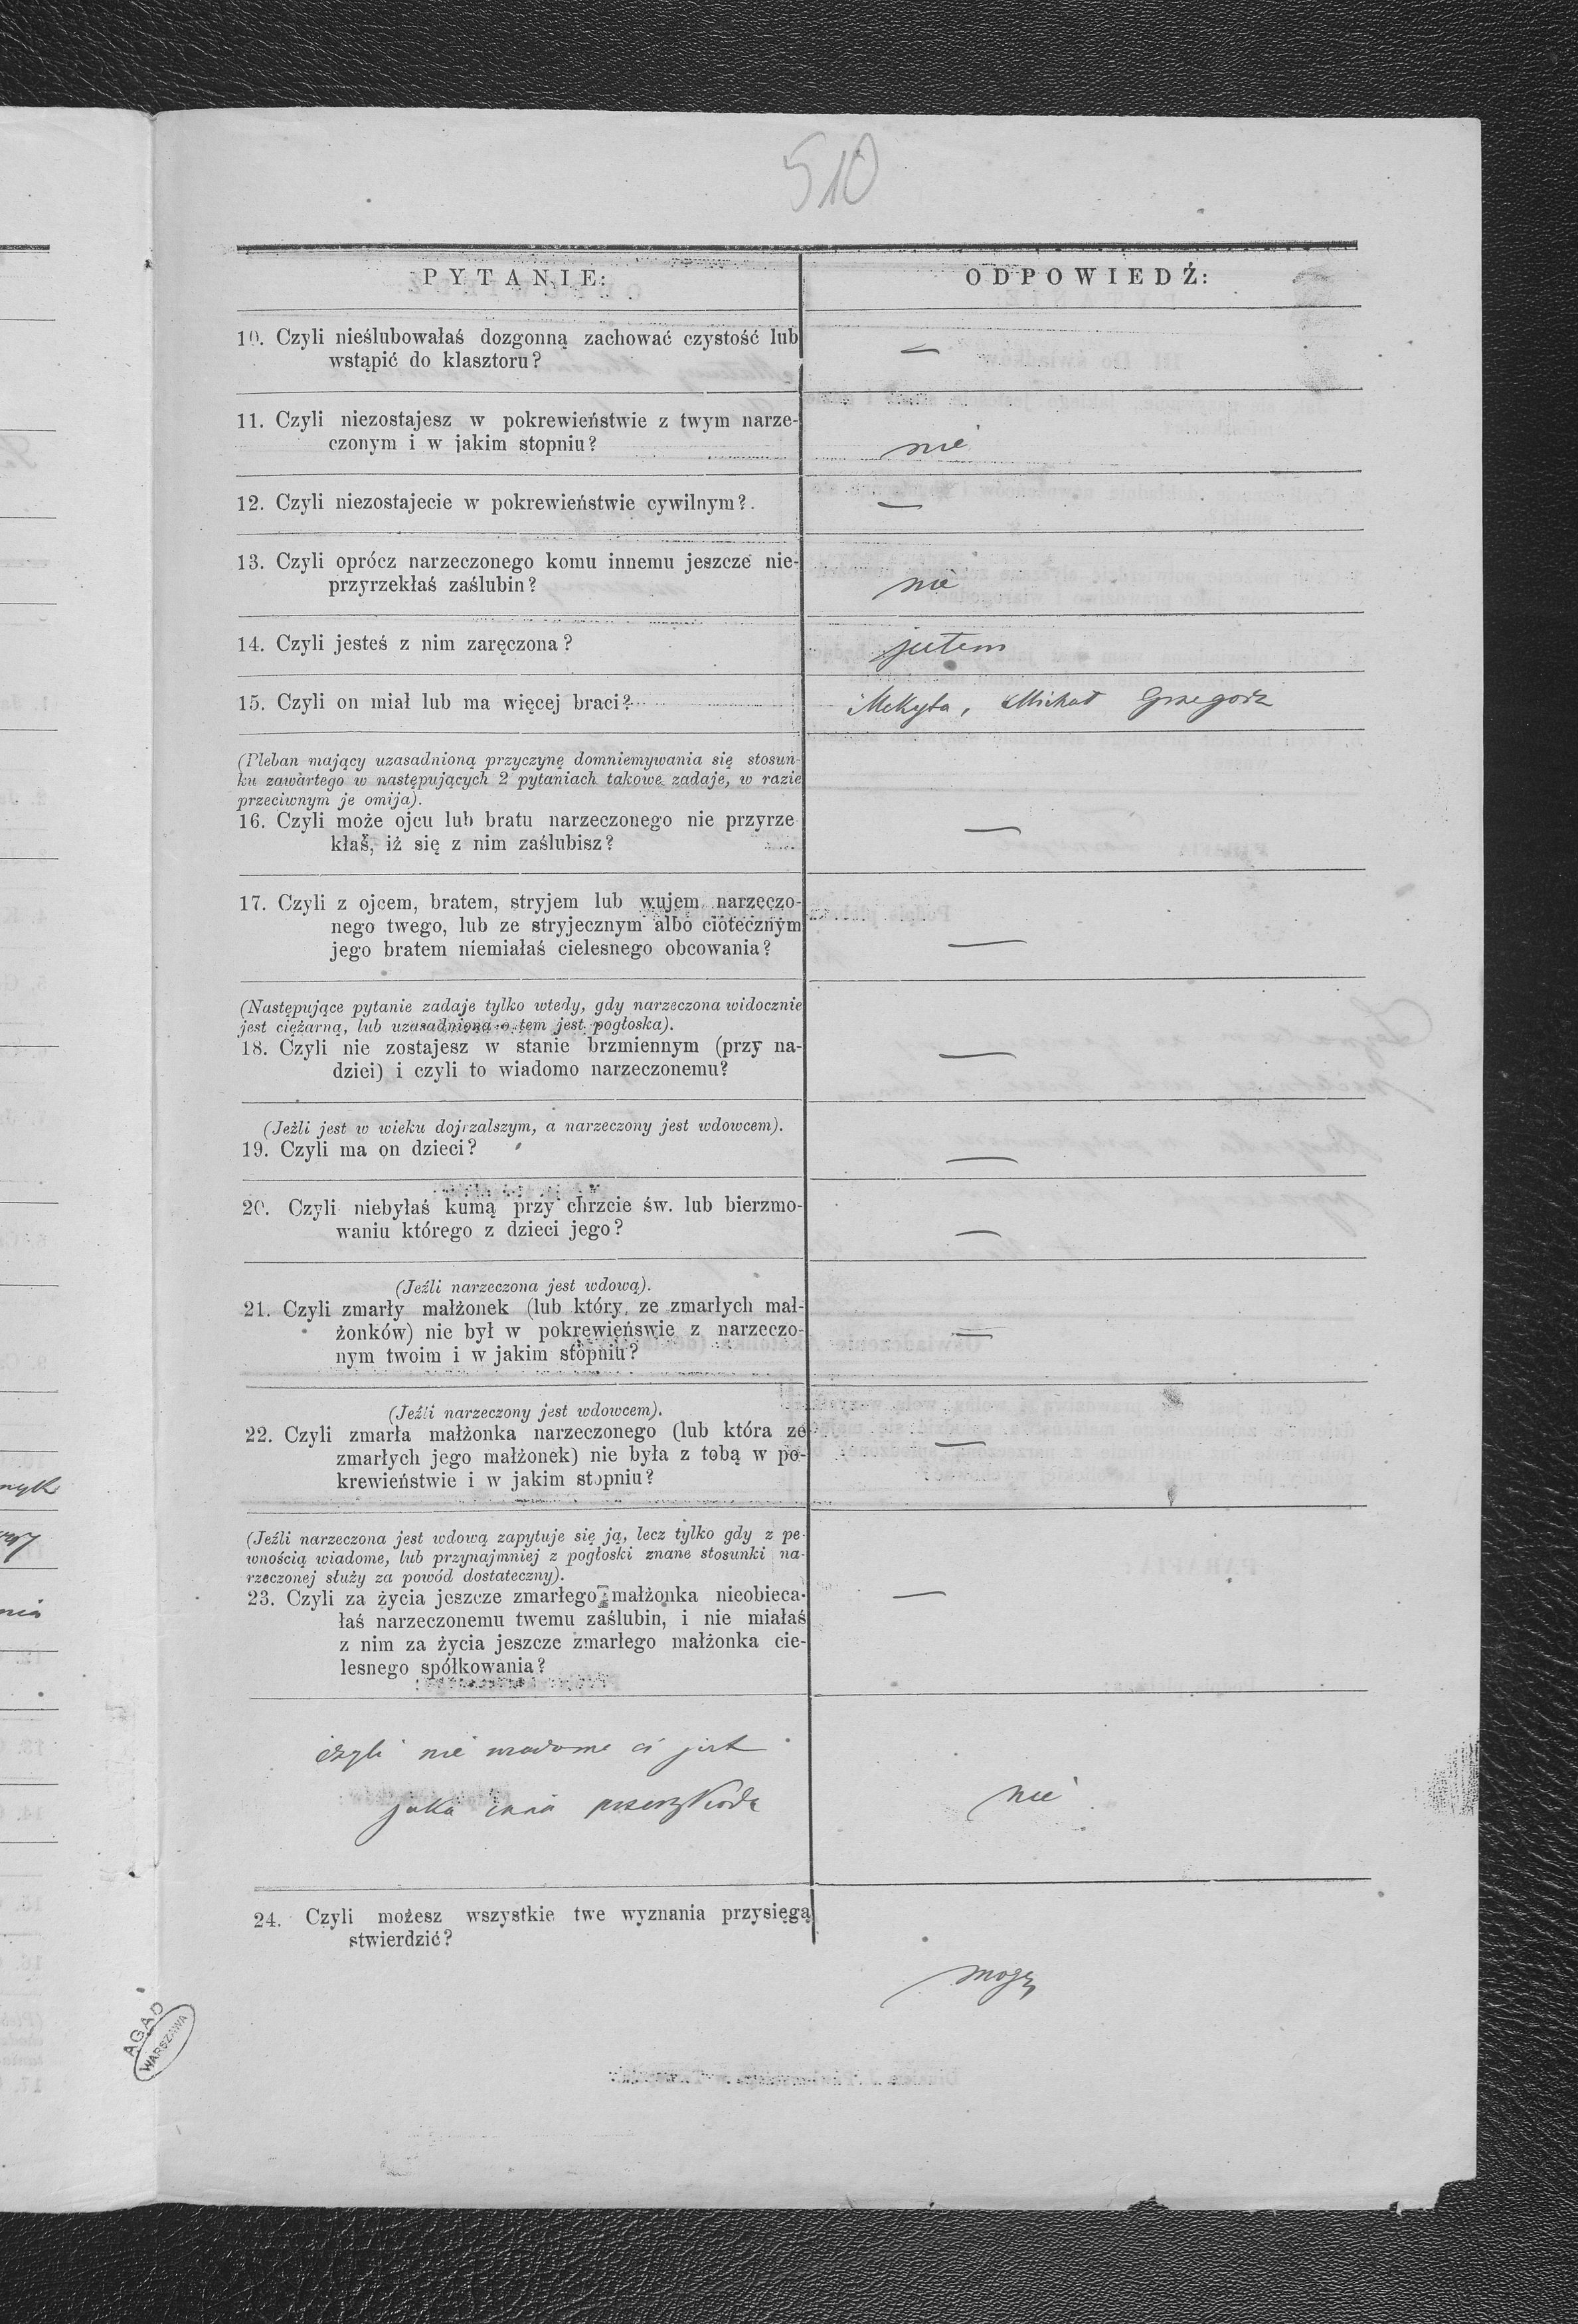 510
PYTANIE:
ODPOWIEDŹ:
10. Czyli nieślubowałaś dozgonną zachować czystość lub
wstąpić do klasztoru?
—
11. Czyli niezostajesz w pokrewieństwie z twym narze-
czonym i w jakim stopniu?
nie
12. Czyli niezostajecie w pokrewieństwie cywilnym?.
—
13. Czyli oprócz narzeczonego komu innemu jeszcze nie-
przyrzekłaś zaślubin?
nie
14. Czyli jesteś z nim zaręczona?
jestem
15. Czyli on miał lub ma więcej braci?
Mekyta, Michał Grzegorz
(Pleban mający uzasadnioną przyczynę domniemywania się stosun-
ku zawartego w następujących 2 pytaniach takowe zadaje, w razie
przeciwnym je omija).
16. Czyli może ojcu lub bratu narzeczonego nie przyrze-
kłaś, iż się z nim zaślubisz?
—
17. Czyli z ojcem, bratem, stryjem lub wujem narzeczo-
nego twego, lub ze stryjecznym albo ciotecznym
jego bratem niemiałaś cielesnego obcowania?
—
(Następujące pytanie zadaje tylko wtedy, gdy narzeczona widocznie
jest ciężarną, lub uzasadniona o tem jest pogłoska).
18. Czyli nie zostajesz w stanie brzmiennym (przy na-
dziei) i czyli to wiadomo narzeczonemu?
—
(Jeżli jest w wieku dojrzalszym, a narzeczony jest wdowcem).
19. Czyli ma on dzieci?
—
20. Czyli niebyłaś kumą przy chrzcie św. lub bierzmo-
waniu którego z dzieci jego?
—
(Jeźli narzeczona jest wdową).
21. Czyli zmarły małżonek (lub który ze zmarłych mał-
żonków) nie był w pokrewieńswie z narzeczo-
nym twoim i w jakim stopniu?
—
(Jeźli narzeczony jest wdowcem).
22. Czyli zmarła małżonka narzeczonego (lub która ze
zmarłych jego małżonek) nie była z tobą w po-
krewieństwie i w jakim stopniu?
—
(Jeźli narzeczona jest wdową zapytuje się ją, lecz tylko gdy z pe-
wnością wiadome, lub przynajmniej z pogłoski znane stosunki na-
rzeczonej służy za powód dostateczny).
23. Czyli za życia jeszcze zmarłego małżonka nieobieca-
łaś narzeczonemu twemu zaślubin, i nie miałaś
z nim za życia jeszcze zmarłego małżonka cie-
lesnego spółkowania?
—
czyli nie wiadome ci jest
jaka inna przeszkoda
nie
24. Czyli możesz wszystkie twe wyznania przysięgą
stwierdzić?
mogę
AGAD
WARSZAWA